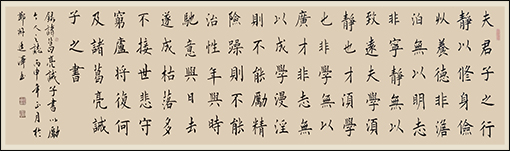 夫君子之行
靜以修身儉
以養德非澹
泊無以明志
非寧靜無以
致遠夫學須
靜也才須學
也非學無以
廣才非志無
以成學漫淫
則不能勵精
險躁則不能
治性年與時
馳意與日去
遂成枯落多
不接世悲守
窮廬將復何
及諸葛亮誡
子之書
錄諸葛亮誡子書以勵
人之丙申年月於
鄭州書